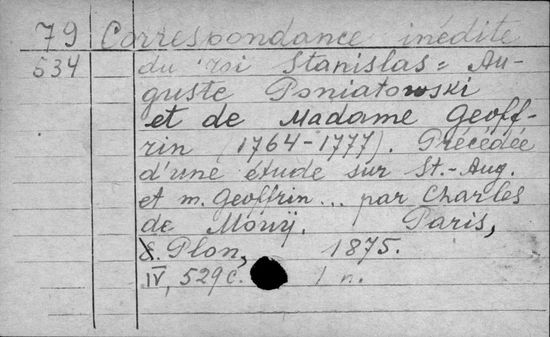 79 Correspondance inédite
534 du roi Stanislas=Au-
guste Poniatowski
et de Madame Geoff-
rin (1764-1777). Précédée
d'une étude sur St.-Aug.
et m. Geoffrin... par Charles
de Mouÿ. Paris,
E. Plon, 1875.
IV, 529 c. 1 n.